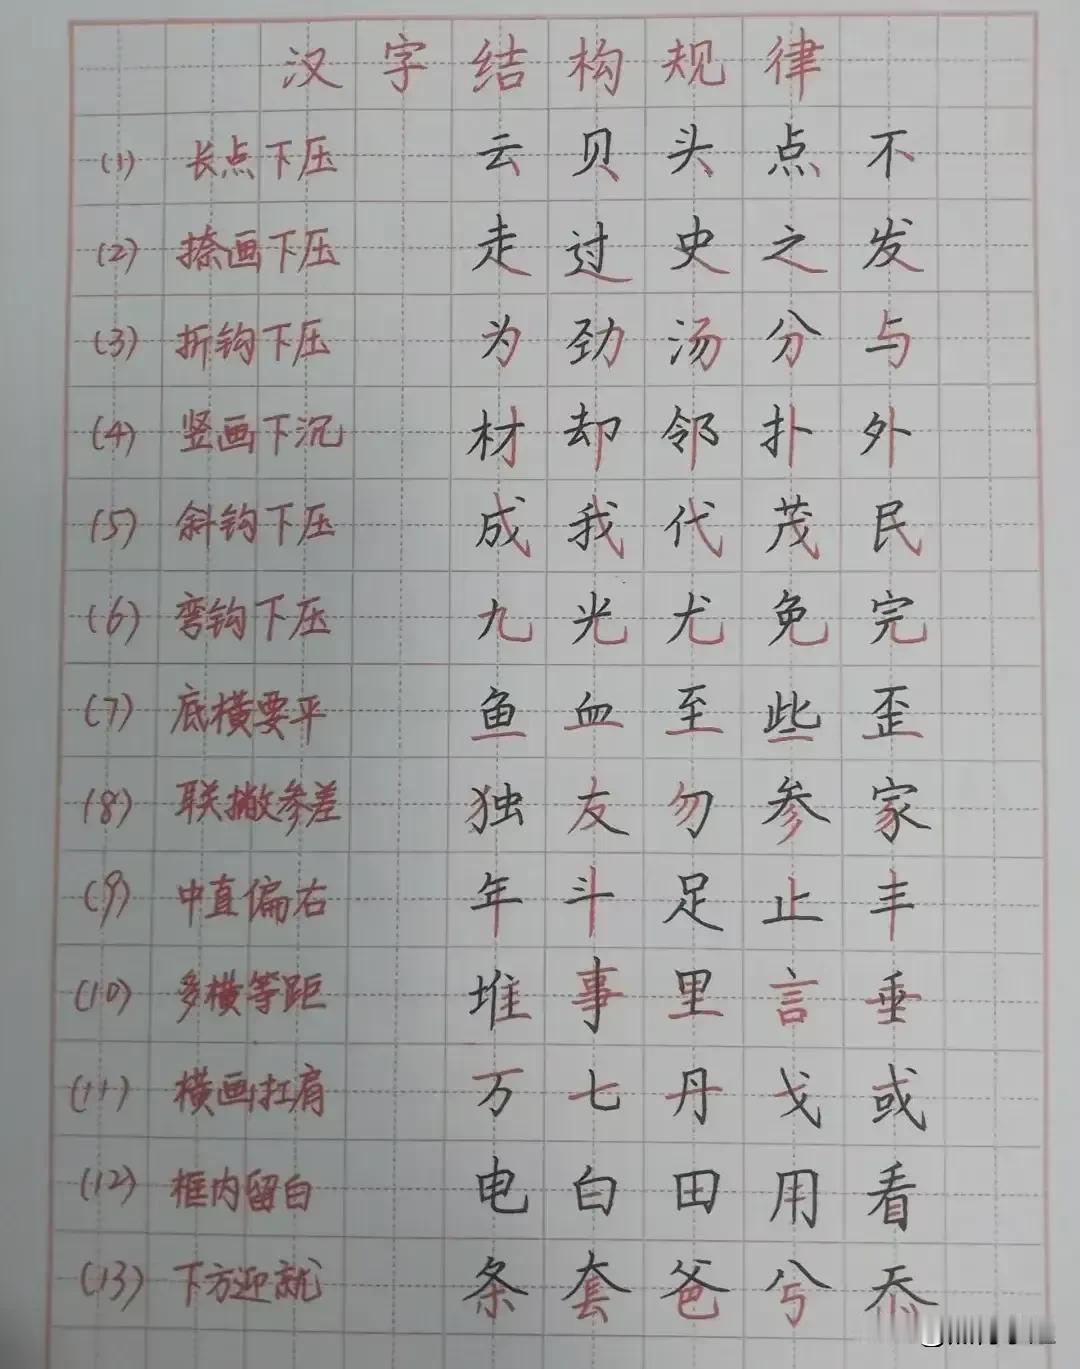 汉字结构规律
(1) 长点下压 云 贝 头 点 不
(2) 捺画下压 走 过 史 之 发
(3) 折钩下压 为 劲 汤 分 与
(4) 竖画下沉 材 却 邻 扑 外
(5) 斜钩下压 成 我 代 茂 民
(6) 弯钩下压 九 光 尤 免 完
(7) 底横要平 鱼 血 至 些 歪
(8) 联撇参差 独 友 勿 参 家
(9) 中直偏右 年 斗 足 止 丰
(10) 多横等距 堆 事 里 言 垂
(11) 横画扛肩 万 七 丹 戈 或
(12) 框内留白 电 白 田 用 看
(13) 下方迎就 条 套 爸 兮 忝